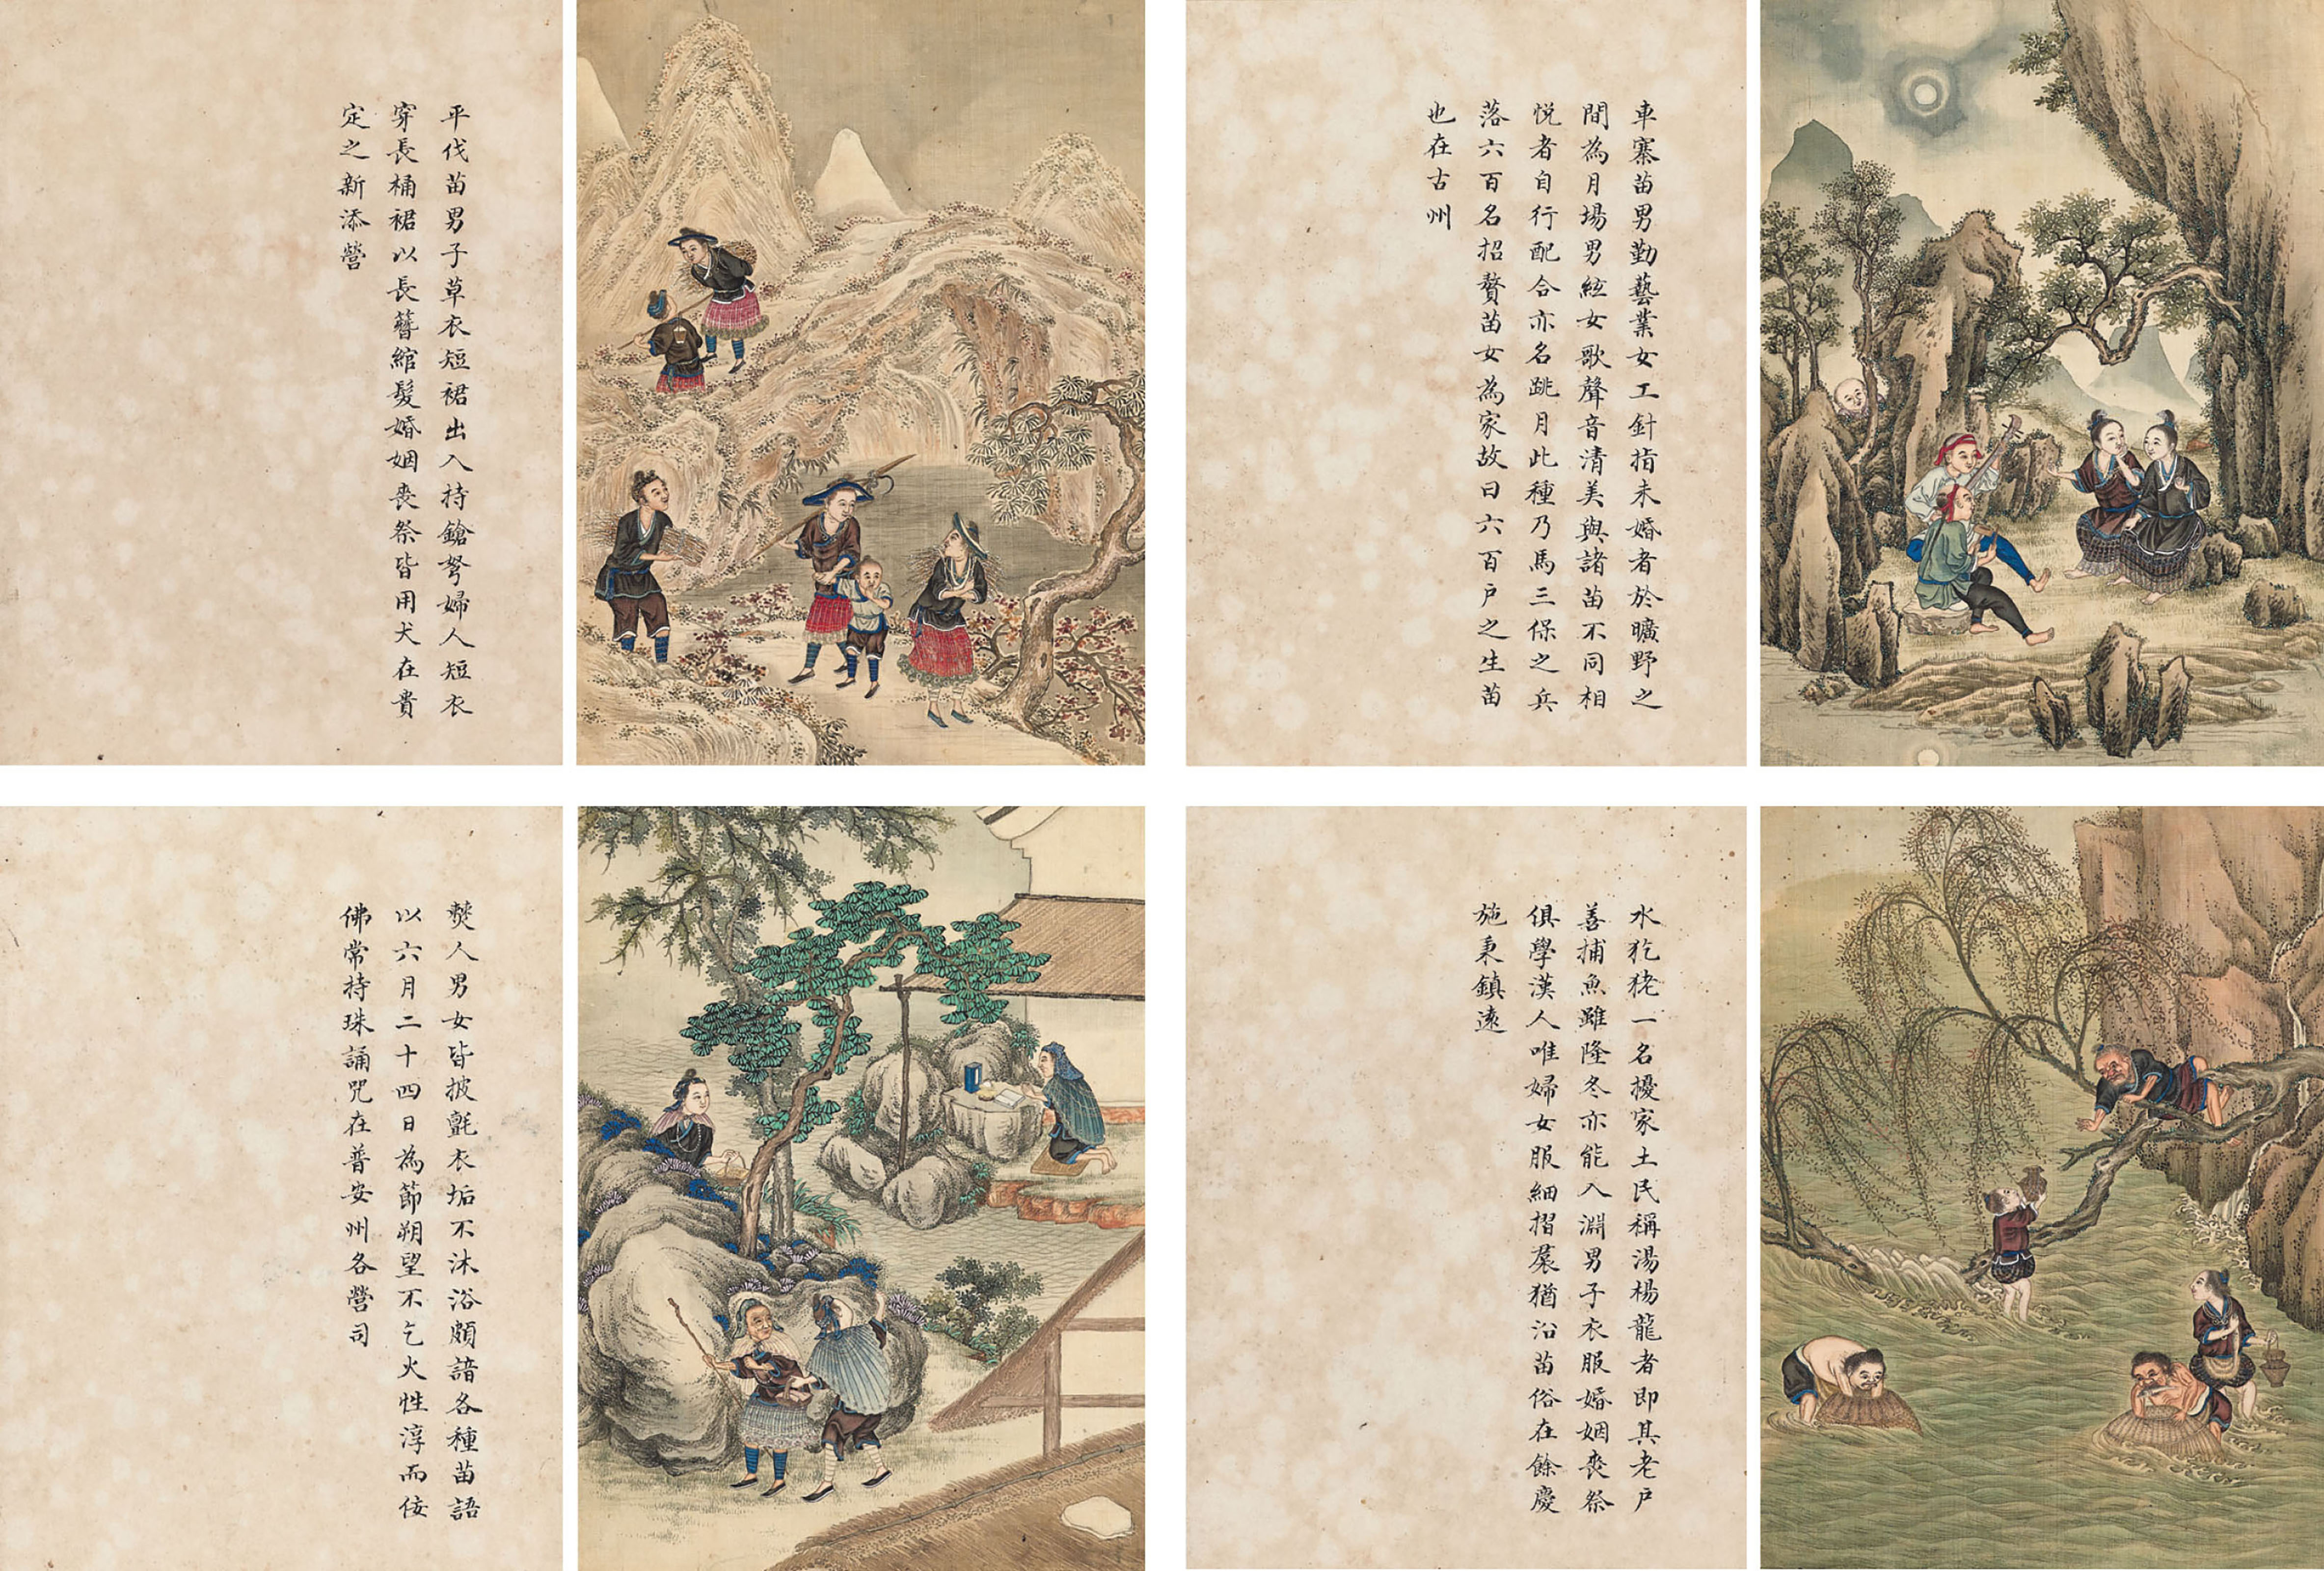 平伐苗男子草衣短裙出入持鎗弩婦人短衣
穿長桶裙以長簪綰髮婚姻喪祭皆用犬在貴
定之新添營
車寨苗男勤藝業女工針指未婚者於曠野之
間為月場男絃女歌聲音清美與諸苗不同相
悅者自行配合亦名跳月此種乃馬三保之兵
落六百名招贅苗女為家故曰六百戶之生苗
也在古州
僰人男女皆披氈衣垢不沐浴頗諳各種苗語
以六月二十四日為節朔望不乞火性淳而佞
佛常持珠誦咒在普安州各營司
水犵狫一名擾家土民稱湯楊龍者即其老戶
善捕魚雖隆冬亦能入淵男子衣服婚姻喪祭
俱學漢人唯婦女服細摺裠猶沿苗俗在餘慶
施秉鎮遠